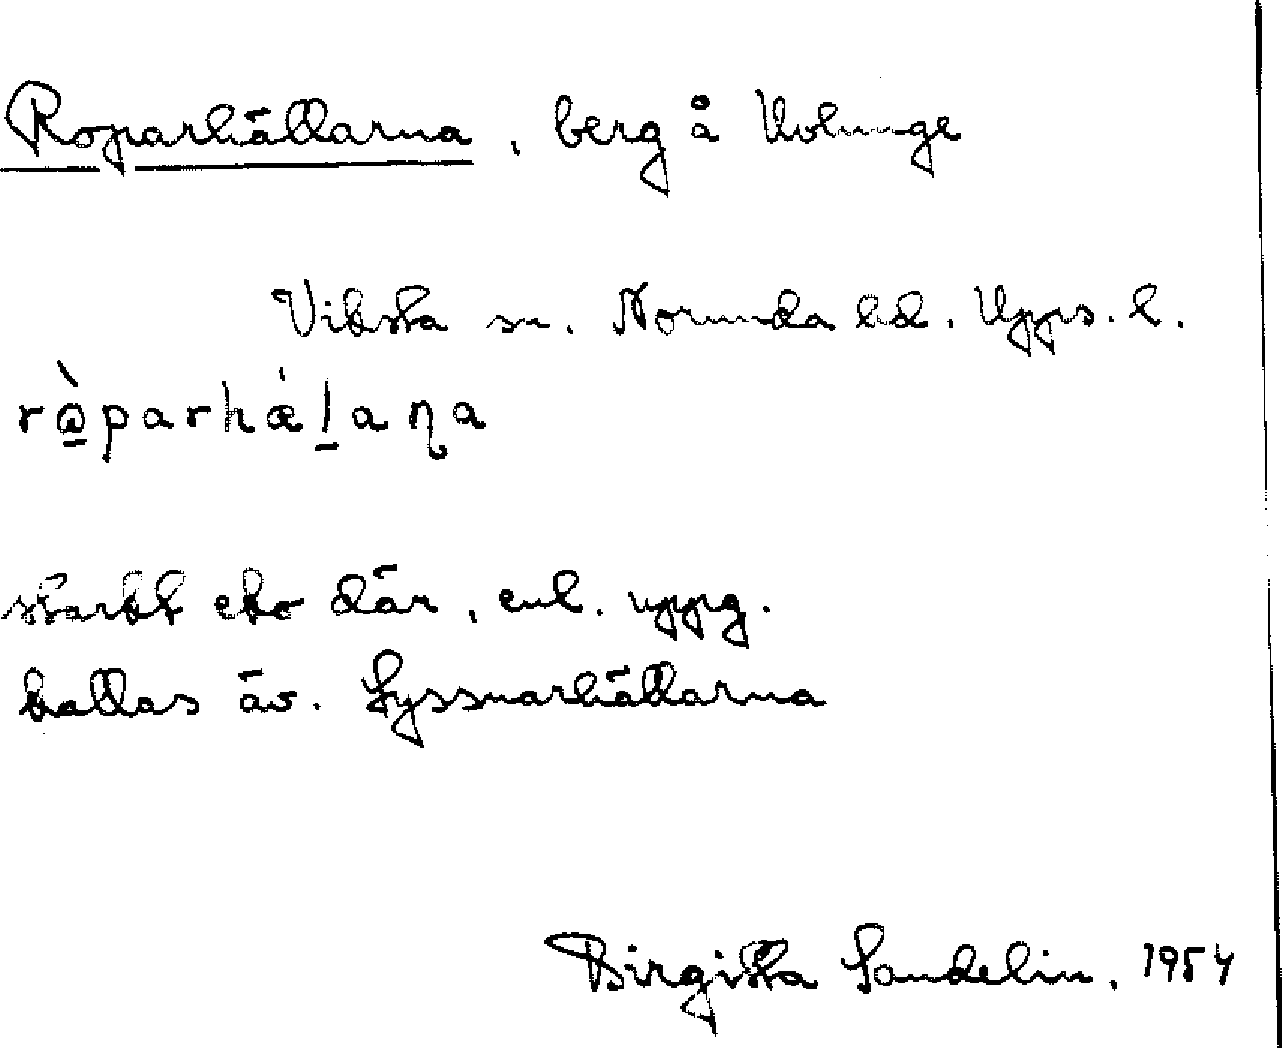 Roparhällarna, berg å Kolunge
Viksta sn. Norunda hd. Upps. l.
starkt eko där, enl. uppg.
kallas äv. Lyssnarhällarna
Birgitta Sandelin. 1954